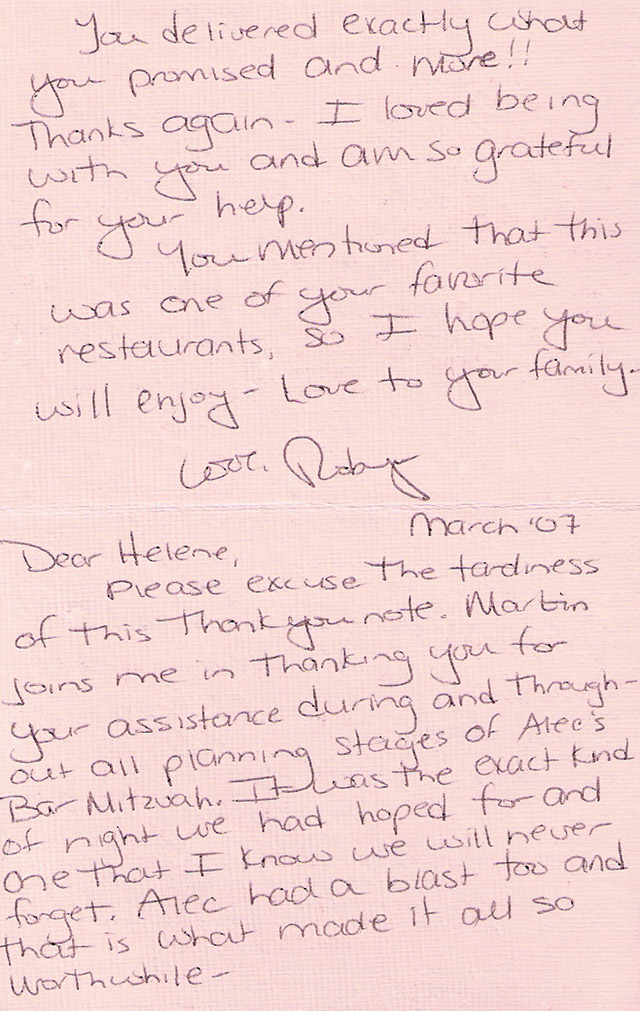 You delivered exactly what
you promised and more!!
Thanks again - I loved being
with you and am so grateful
for your help.
You mentioned that this
was one of your favorite
restaurants, so I hope you
will enjoy - Love to your family -
Love, Robyn
March '07
Dear Helene,
Please excuse the tardiness
of this Thank you note. Martin
joins me in thanking you for
your assistance during and through-
out all planning stages of Alec's
Bar Mitzvah. It was the exact kind
of night we had hoped for and
one that I know we will never
forget. Alec had a blast too and
that is what made it all so
worthwhile -